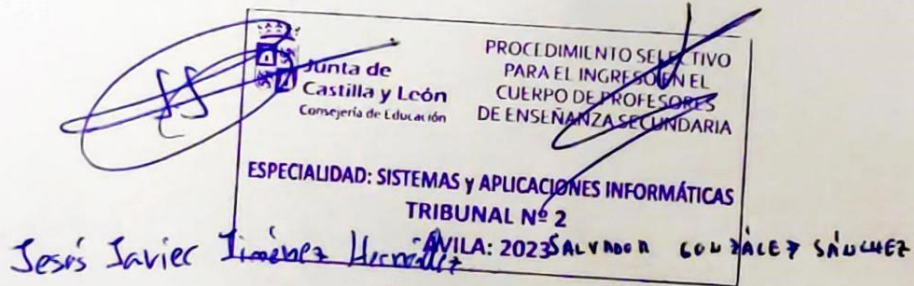 Junta de
Castilla y León
Consejería de Educación
PROCEDIMIENTO SELECTIVO
PARA EL INGRESO EN EL
CUERPO DE PROFESORES
DE ENSEÑANZA SECUNDARIA
ESPECIALIDAD: SISTEMAS y APLICACIONES INFORMÁTICAS
TRIBUNAL Nº 2
ÁVILA: 2023
Jesús Javier Jiménez
SALVADOR GONZÁLEZ SÁNCHEZ